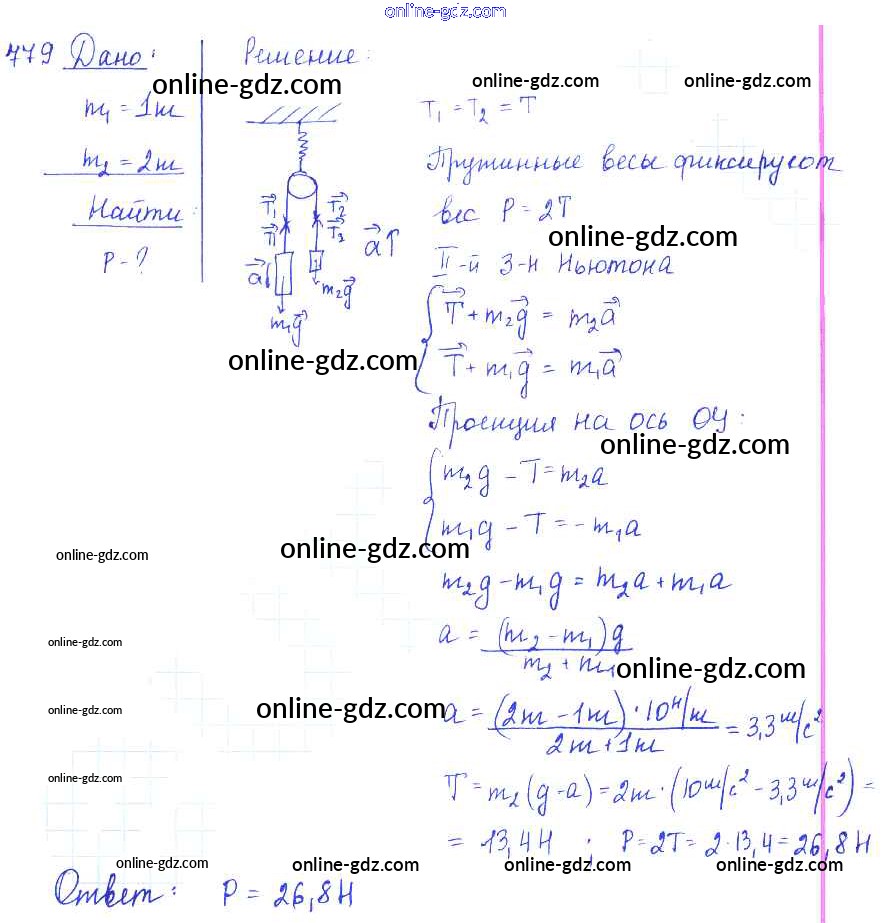 online-gdz.com
779 Дано: Решение:
online-gdz.com online-gdz.com online-gdz.com
m₁ = 1m
T₁ = T₂ = T
m₂ = 2m
Пружинные весы фиксируют
Найти:
вес P = 2T
P - ?
online-gdz.com
T⃗₁ T⃗₂
T⃗₁ T⃗₂
a⃗↑
a⃗↓
1
m₂g⃗
m₁g⃗
II-й З-н Ньютона
T⃗ + m₂g⃗ = m₂a⃗
online-gdz.com
T⃗ + m₁g⃗ = m₁a⃗
Проекция на ось OY:
online-gdz.com
m₂g - T = m₂a
m₁g - T = - m₁a
online-gdz.com online-gdz.com
m₂g - m₁g = m₂a + m₁a
online-gdz.com
a = (m₂ - m₁)g / m₂ + m₁
online-gdz.com
online-gdz.com online-gdz.com
a = (2m - 1m) · 10 Н/m / 2m + 1m = 3,3 м/с²
online-gdz.com
T = m₂(g - a) = 2m · (10 м/с² - 3,3 м/с²) =
= 13,4 Н ; P = 2T = 2 · 13,4 = 26,8 Н
online-gdz.com online-gdz.com online-gdz.com online-gdz.com
Ответ: P = 26,8 Н